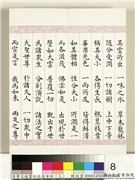 其雲所出 一味之水 草木叢林
隨分受潤 一切諸樹 上中下等
稱其大小 各得生長 根莖枝葉
華果光色 一雨所及 皆得鮮澤
如其體相 性分大小 所潤是一
而各滋茂 佛亦如是 出現於世
譬如大雲 普覆一切 既出于世
為諸眾生 分別演說 諸法之實
大聖世尊 於諸天人 一切眾中
而宣是言 我為如來 兩足之尊
8